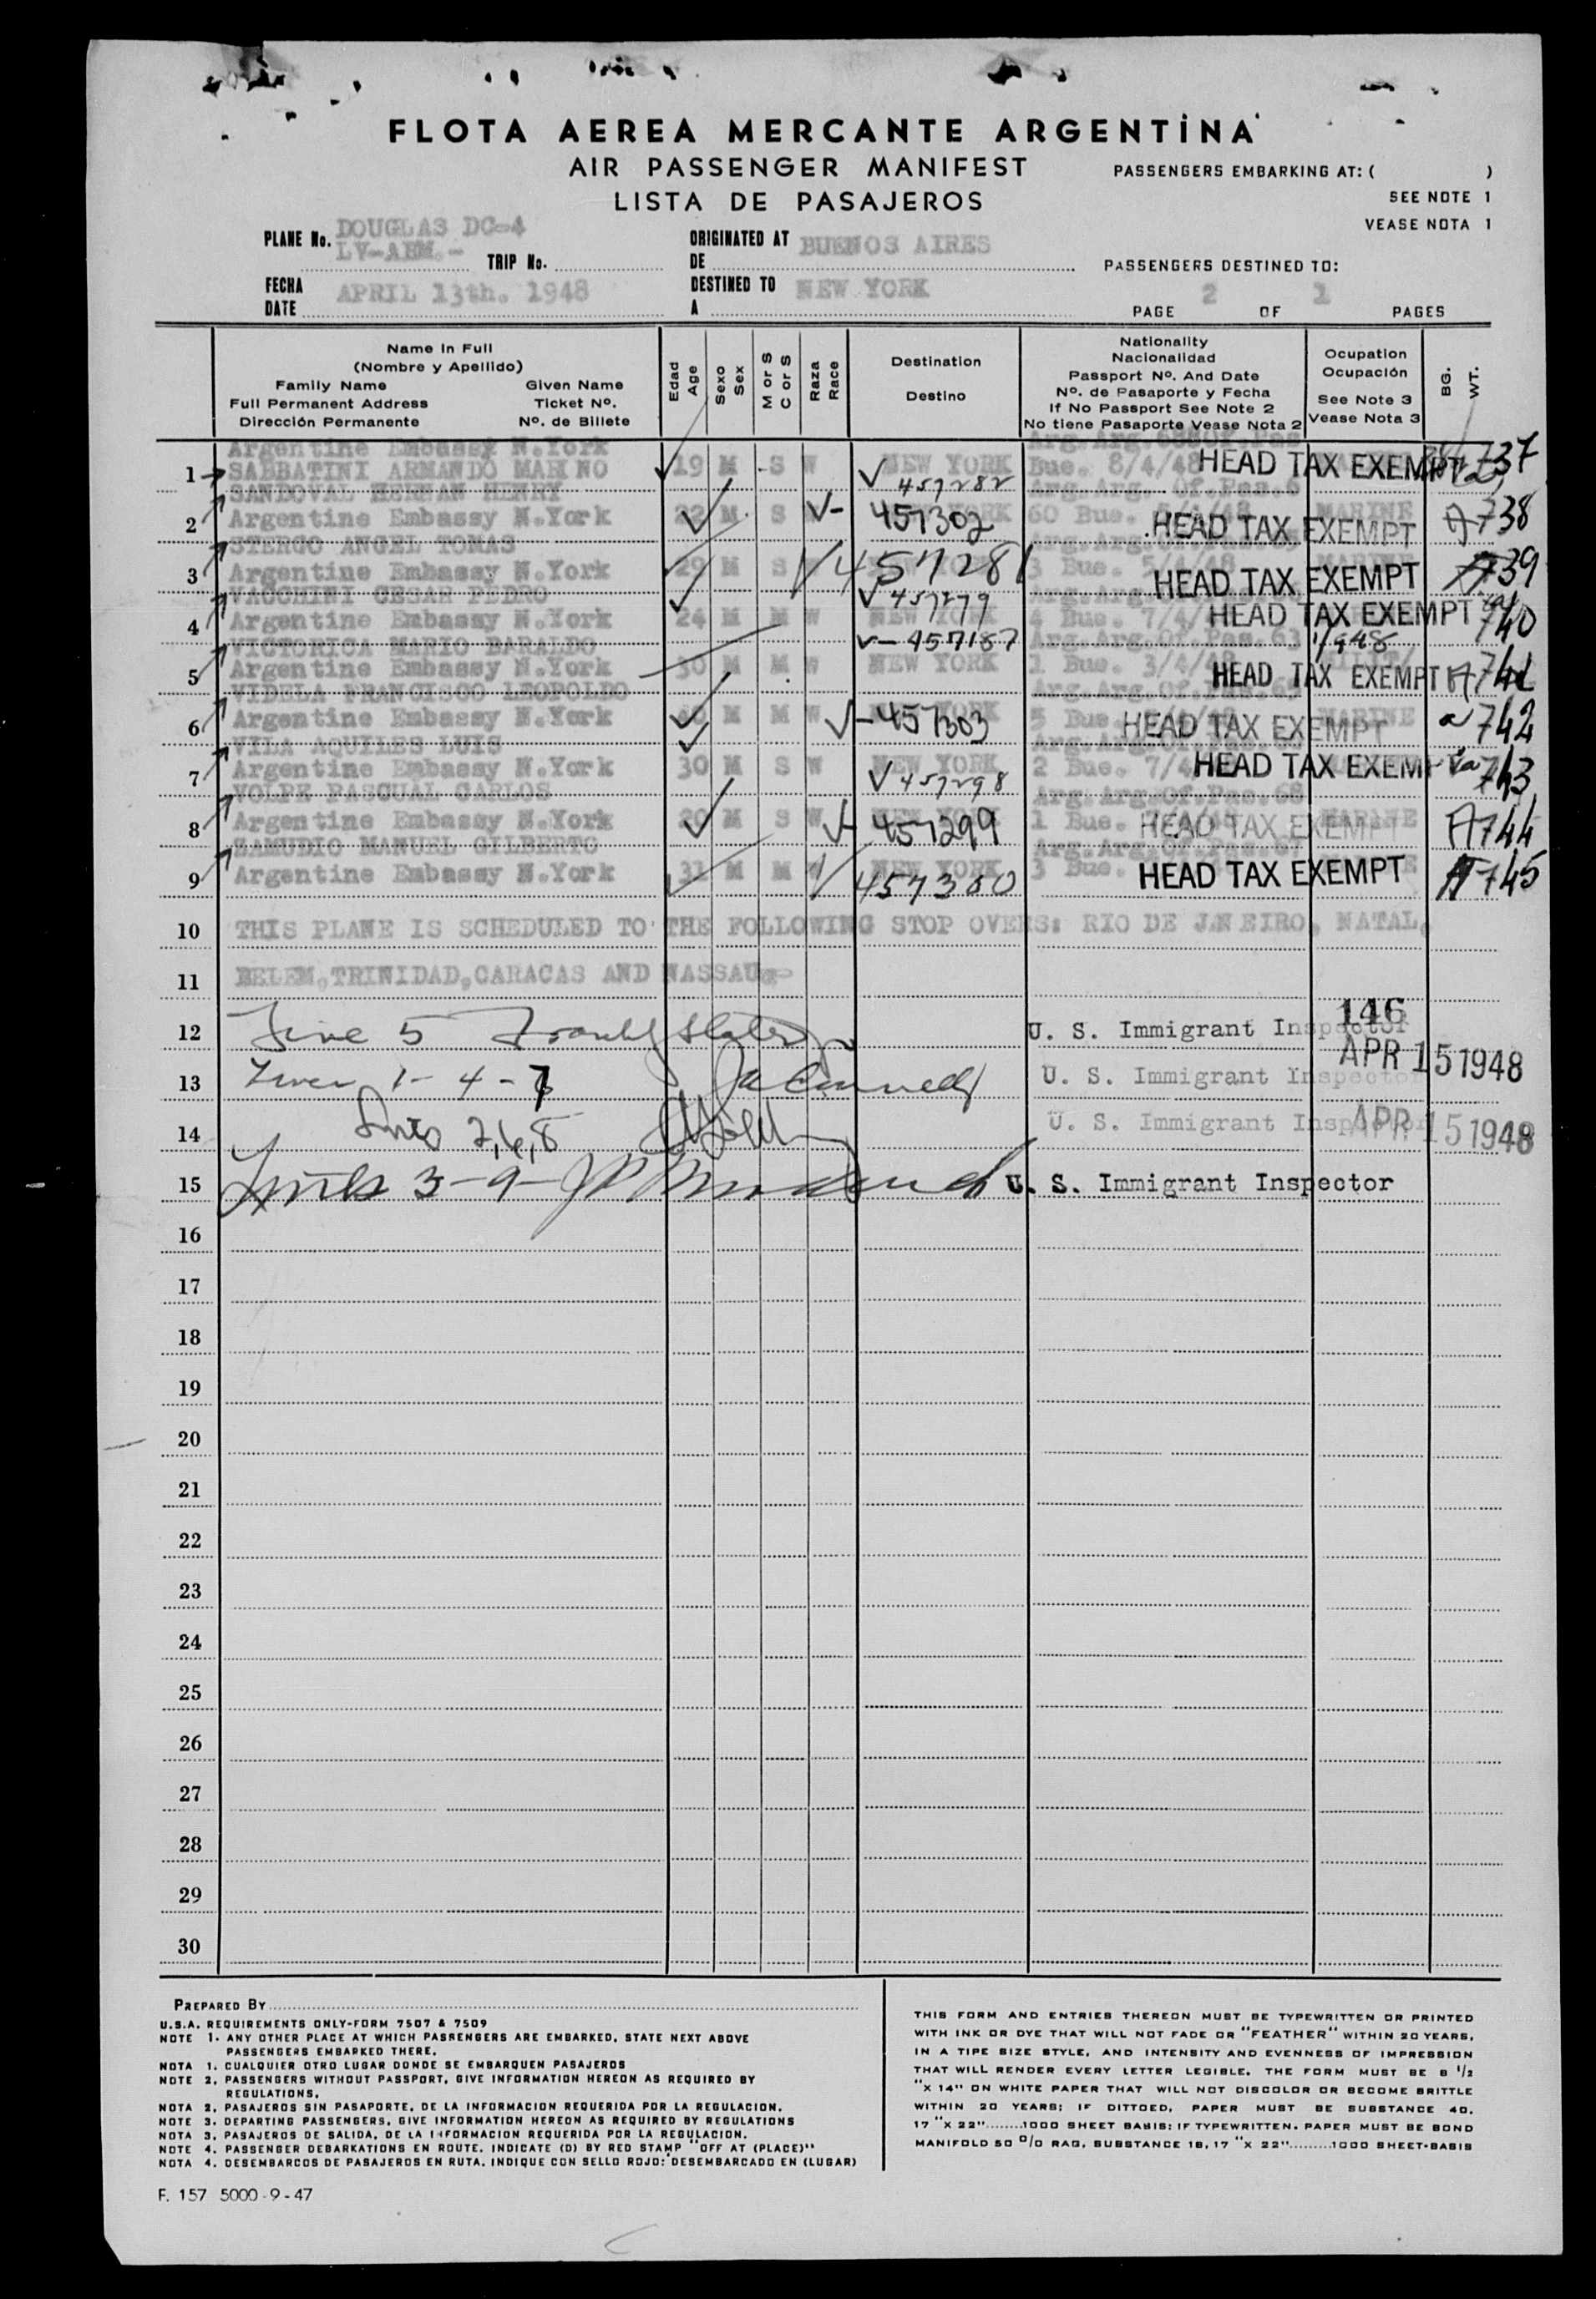 FLOTA AEREA MERCANTE ARGENTINA
AIR PASSENGER MANIFEST
LISTA DE PASAJEROS
PASSENGERS EMBARKING AT: ( )
SEE NOTE 1
VEASE NOTA 1
PLANE No. DOUGLAS DC-4
TRIP No.
ORIGINATED AT BUENOS AIRES
DE
PASSENGERS DESTINED TO:
FECHA
DATE APRIL 13th. 1948
DESTINED TO NEW YORK
A
PAGE 2 OF 1 PAGES
Name in Full
(Nombre y Apellido)
Family Name Given Name
Full Permanent Address Ticket Nº.
Dirección Permanente Nº. de Billete
Edad Age
Sexo Sex
M or S C or S
Raza Race
Destination
Destino
Nationality
Nacionalidad
Passport Nº. And Date
Nº. de Pasaporte y Fecha
If No Passport See Note 2
No tiene Pasaporte Vease Nota 2
Ocupation
Ocupación
See Note 3
Vease Nota 3
BG. WT.
Argentine Embassy N.York
1 SABBATINI ARMANDO MARINO 19 M S W NEW YORK 457282 Bue. 8/4/48 HEAD TAX EXEMPT 737
SANDOVAL HERNAN HENRY
2 Argentine Embassy N.York M S 457302 60 Bue. HEAD TAX EXEMPT A738
STERGO ANGEL TOMAS
3 Argentine Embassy N.York 29 M S 457281 3 Bue. 5/4/48 HEAD TAX EXEMPT A739
VACCHINI CESAR PEDRO
4 Argentine Embassy N.York 24 M M W NEW YORK 457279 4 Bue. 7/4/ HEAD TAX EXEMPT 740
VICTORICA MARIO BARALDO 457187 Arg.Arg.Of.Pas.63
5 Argentine Embassy N.York 30 M M W NEW YORK 1 Bue. 3/4/48 HEAD TAX EXEMPT A741
VIDELA FRANCISCO LEOPOLDO
6 Argentine Embassy N.York M M W 457303 5 Bue. HEAD TAX EXEMPT a742
VILA AQUILES LUIS
7 Argentine Embassy N.York 30 M S W NEW YORK 457298 2 Bue. 7/4/ HEAD TAX EXEMPT a743
VOLPE PASCUAL CARLOS Arg.Arg.Of.Pas.68
8 Argentine Embassy N.York M S W 457299 1 Bue. HEAD TAX EXEMPT A744
ZAMUDIO MANUEL GILBERTO
9 Argentine Embassy N.York 31 M M NEW YORK 457300 3 Bue. HEAD TAX EXEMPT A745
10 THIS PLANE IS SCHEDULED TO THE FOLLOWING STOP OVERS: RIO DE JANEIRO, NATAL,
11 BELEM,TRINIDAD,CARACAS AND NASSAU
146
12 Line 5 U. S. Immigrant Inspector
APR 15 1948
13 Lines 1-4-7 U. S. Immigrant Inspector
14 Lines 2,6,8 U. S. Immigrant Inspector APR 15 1948
15 Lines 3-9- U. S. Immigrant Inspector
16
17
18
19
20
21
22
23
24
25
26
27
28
29
30
PREPARED BY
U.S.A. REQUIREMENTS ONLY-FORM 7507 & 7509
NOTE 1. ANY OTHER PLACE AT WHICH PASSENGERS ARE EMBARKED, STATE NEXT ABOVE
PASSENGERS EMBARKED THERE.
NOTA 1. CUALQUIER OTRO LUGAR DONDE SE EMBARQUEN PASAJEROS
NOTE 2. PASSENGERS WITHOUT PASSPORT, GIVE INFORMATION HEREON AS REQUIRED BY
REGULATIONS.
NOTA 2. PASAJEROS SIN PASAPORTE, DE LA INFORMACION REQUERIDA POR LA REGULACION.
NOTE 3. DEPARTING PASSENGERS, GIVE INFORMATION HEREON AS REQUIRED BY REGULATIONS
NOTA 3. PASAJEROS DE SALIDA, DE LA INFORMACION REQUERIDA POR LA REGULACION.
NOTE 4. PASSENGER DEBARKATIONS EN ROUTE. INDICATE (D) BY RED STAMP "OFF AT (PLACE)"
NOTA 4. DESEMBARCOS DE PASAJEROS EN RUTA. INDIQUE CON SELLO ROJO: DESEMBARCADO EN (LUGAR)
F. 157 5000-9-47
THIS FORM AND ENTRIES THEREON MUST BE TYPEWRITTEN OR PRINTED
WITH INK OR DYE THAT WILL NOT FADE OR "FEATHER" WITHIN 20 YEARS,
IN A TIPE SIZE STYLE, AND INTENSITY AND EVENNESS OF IMPRESSION
THAT WILL RENDER EVERY LETTER LEGIBLE. THE FORM MUST BE 8 1/2
"X 14" ON WHITE PAPER THAT WILL NOT DISCOLOR OR BECOME BRITTLE
WITHIN 20 YEARS; IF DITTOED, PAPER MUST BE SUBSTANCE 40,
17 "X 22"........1000 SHEET BASIS; IF TYPEWRITTEN. PAPER MUST BE BOND
MANIFOLD 50 0/0 RAG, SUBSTANCE 18, 17 "X 22".........1000 SHEET-BASIS